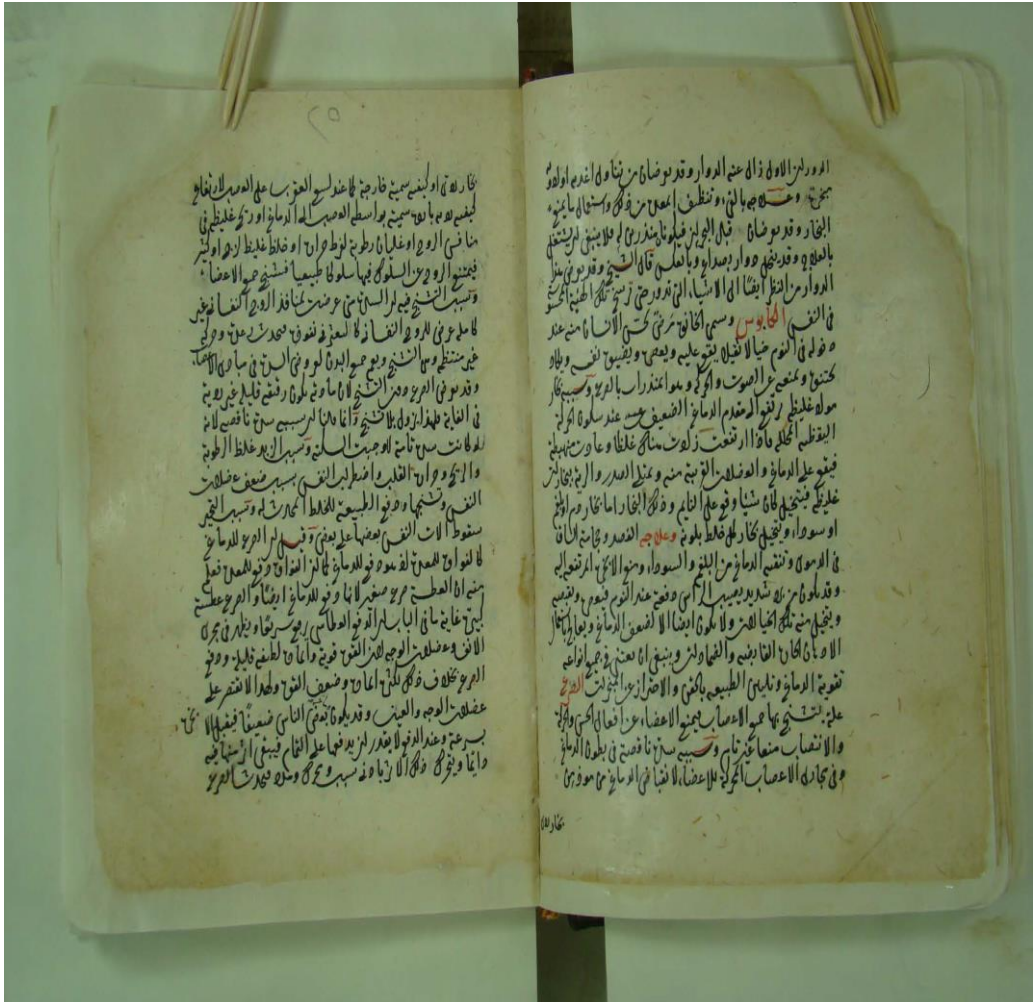 الدور لان الاول زال عنه الدوار وقد يعرضان من تناول اغذية
وعلاجه بالقيء وتنظيف المعدة من ذلك واستعمال ما يمنع
البخار وقد يعرضان قبل البحران فيكونان منذرين به فلا ينبغي ان يشتغل
بالعلاج وقد ينحل دوار بصداع وبالعكس قال الشيخ وقد يعرض هذا
الدوار من النظر ايضا الى الاشياء التي تدور حتى ترسخ تلك الهيئة المحسوسة
في النفس الكابوس ويسمى الخانق مرض يحس الانسان منه عند
دخوله في النوم خيالا ثقيلا يقع عليه ويعصره ويضيق نفسه ويكاد
يختنق ويمنعه عن الصوت والحركة وهو منذر بالصرع وسببه بخار
مواد غليظة ترتفع الى مقدم الدماغ الضعيف عند سكون حركة
اليقظة المحللة فاذا ارتفعت زادت هناك غلظا وعادت
فيقع على الدماغ والعضلات القريبة منه ويمتلئ الصدر والرية بخارات
غليظة فيتخيل كان شيئا وقع على النايم وذلك البخار اما بخار دم او بلغم
او سوداء ويتخيل بخار كل خلط بلونه وعلاجه الفصد وحجامة الساق
في الدموي وتنقية الدماغ من البلغم والسوداء ومنع الابخرة المرتفعة اليه
وقد يكون من برد شديد يصيب الراس دفعة عند النوم
ويتخيل منه تلك الخيالات ولا يكون ايضا الا لضعف الدماغ ويعالج باستعمال
الادهان الحارة القابضة والضمادات وينبغي ان يعتنى في جميع انواعه
تقوية الدماغ وتليين الطبيعة بالحقن والاحتراز عن المبخرات الصرع
علة يتشنج بها جميع الاعصاب فيمنع الاعضاء عن افعال الحس والحركة
والانتصاب منعا غير تام وسببه سدة ناقصة في بطون الدماغ
وفي مجاري الاعصاب المحركة للاعضاء لانقباض الدماغ من موذ من
بخار ردي
بخار ردي او كيفية سمية خارجة كما عند لسع العقرب على العصب لارتفاع
كيفية ردية سمية بواسطة العصب الى الدماغ او ريح غليظة في
منافس الروح او غليان رطوبة لفرط حرارة او خلط غليظ لزج او كثير
فيمتنع الروح عن السلوك فيها سلوكا طبيعيا فتتشنج جميع الاعضاء
وسبب التشنج فيه ان السدة متى عرضت لمنافذ الروح النفساني غير
كاملة عرض للروح النفساني كالمعترض لنفوذه فتحدث رعدة وحركة
غير منتظمة ومن التشنج ويعم جميع البدن لوقوع السدة في مبادي الاعصاب
وقد يعرض الصرع ومن التشنج لان مادته تكون رقيقة قليلة غير ردية
في الغاية فلهذا يزول بلا تشنج وانما قلنا ان سببه سدة ناقصة لانه
لو كانت سدة تامة لاوجبت السكتة وسبب الزبد غلظ الرطوبة
والريح وحرارة القلب واضطراب النفس بسبب ضعف عضلات
النفس وتشنجها ودفع الطبيعة للخلط المحدث له وسبب النخير
سقوط الات النفس بعضها على بعض وقيل ان الصرع للدماغ
كالفواق للمعدة لانه دفع للدماغ كما ان الفواق دفع للمعدة فعلم
منه ان العطسة صرع صغير لانها دفع للدماغ ايضا والصرع عطسة
كبيرة غاية ما في الباب ان الدفع العطاسي يدفع سريعا ويظهر في مجرى
الانف وعضلات الوجه لان القوة قوية والمادة لطيفة قليلة ودفع
الصرع بخلاف ذلك لكثرة المادة وضعف القوة ولهذا لا يقتصر على
عضلات الوجه والعين وقد يكون بعض الناس ضعيفا فيقبل
بسرعة وعند الدفع لا يقدر ان يدفعها على التمام فيبقى اثر منها فيه
دايما ويتحرك ذلك الاثر بادنى سبب ومحرك فيحدث الصرع